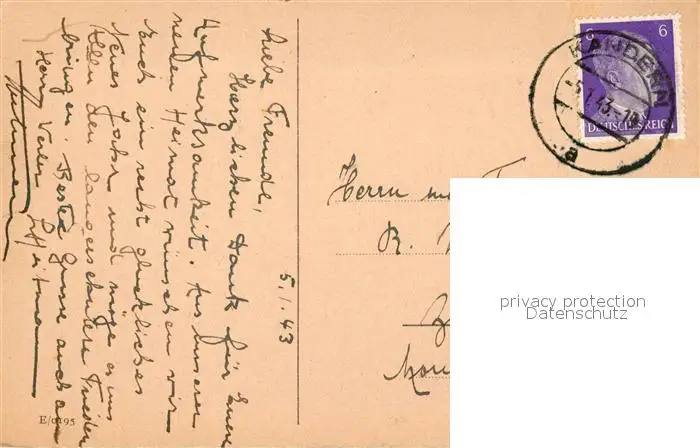 5.1.43
Liebe Freunde,
Herzlichen Dank für Eure
Aufmerksamkeit. Aus unserer
neuen Heimat wünschen wir
Euch ein recht glückliches
Neues Jahr und möge es uns
Allen den langersehnten Frieden
bringen. Beste Grüsse auch an
Herrn
E/0195
6 6
DEUTSCHES REICH
KANDERN
5.1.43
a
Herrn
R.
privacy protection
Datenschutz